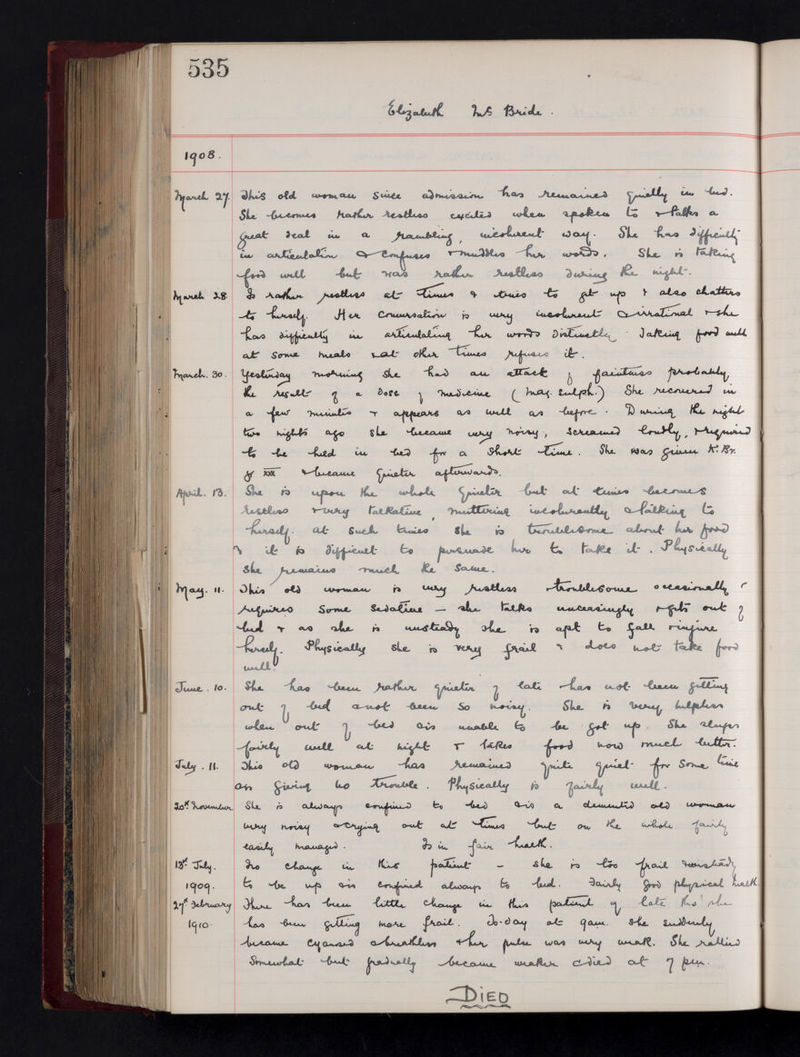 535
Elizabeth McBride.
1908.
March 27. This old woman since admission has remained quietly in bed.
She becomes rather restless excited when spoken to & talks a
great deal in a rambling, incoherent way. She has difficulty
in articulation & confuses & muddles her words. She is taking
food well but was rather restless during the night.
March 28. Is rather restless at times & tries to get up & also chatters
to herself. Her conversation is very incoherent & irrational & she
has difficulty in articulating her words distinctly. Taking food well
at some meals & at other times refuses it.
March. 30. Yesterday morning she had an attack of faintness probably
the result of a dose of medicine (Mag. Sulph.) She recovered in
a few minutes & appears as well as before. During the night
two nights ago she became very noisy, screamed loudly, & required
to be held in bed for a short time. She was given K. Br.
gr xxx & became quieter afterwards.
April. 13. She is upon the whole quieter but at times becomes
restless & very talkative, muttering incoherently & talking to
herself. at such times she is troublesome about her food
& it is difficult to persuade her to take it. Physically
she remains much the same.
May. 11. This old woman is very restless & troublesome occasionally &
requires some sedative – she talks unceasingly & gets out of
bed & as she is unsteady she is apt to fall & injure
herself. Physically she is very frail & does not take food
well.
June. 10. She has been rather quieter of late & has not been getting
out of bed & not been so noisy. She is very helpless
when out of bed & is unable to be got up. She sleeps
fairly well at night & takes food now much better.
July. 11. This old woman has remained quite quiet for some time
giving no trouble. Physically is fairly well.
20th November She is always confined to bed & is a demented old woman
very noisy & crying out at times but on the whole fairly
easily managed. Is in fair health.
13th July. No change in this patient – she is too frail & unsteady
1909. to be up & is confined always to bed. Fairly good physical health
27th February There has been little change in this patient of late tho' she
1910. has been getting more frail. To-day at 9am. she suddenly
became cyanosed & breathless & her pulse was very weak. She rallied
somewhat but gradually became weaker & died at 7 pm.
DIED